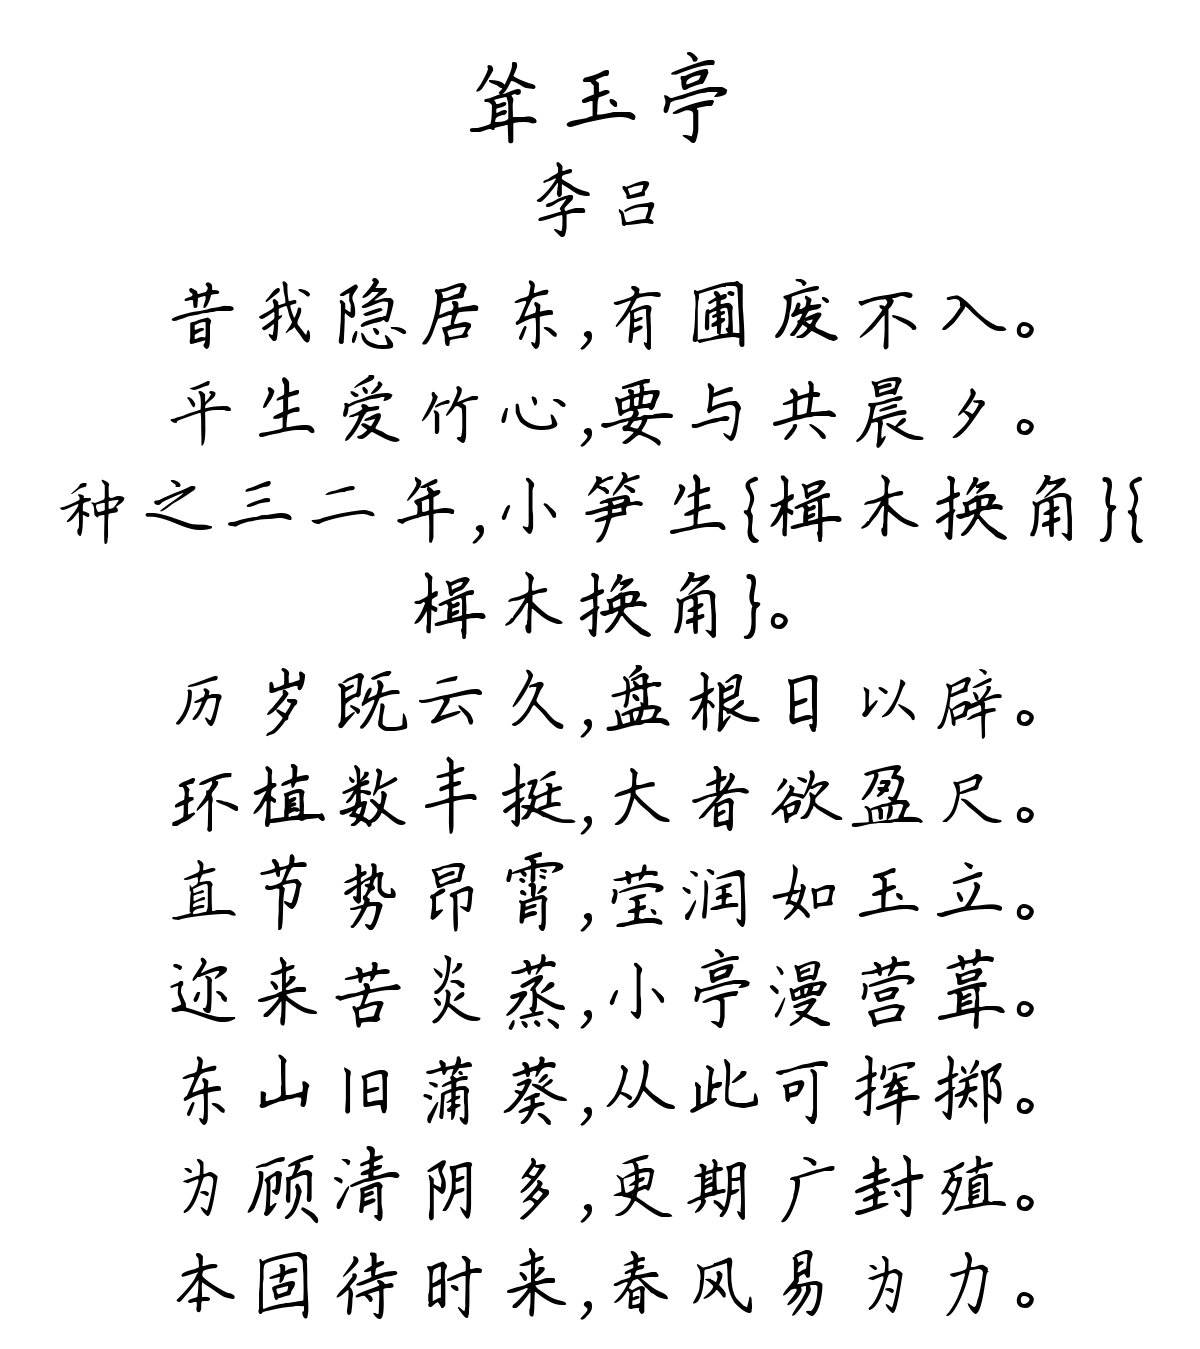 耸玉亭
李吕
昔我隐居东,有圃废不入。
平生爱竹心,要与共晨夕。
种之三二年,小笋生{楫木换角}{
楫木换角}。
历岁既云久,盘根日以辟。
环植数丰挺,大者欲盈尺。
直节势昂霄,莹润如玉立。
迩来苦炎蒸,小亭漫营葺。
东山旧蒲葵,从此可挥掷。
为顾清阴多,更期广封殖。
本固待时来,春风易为力。